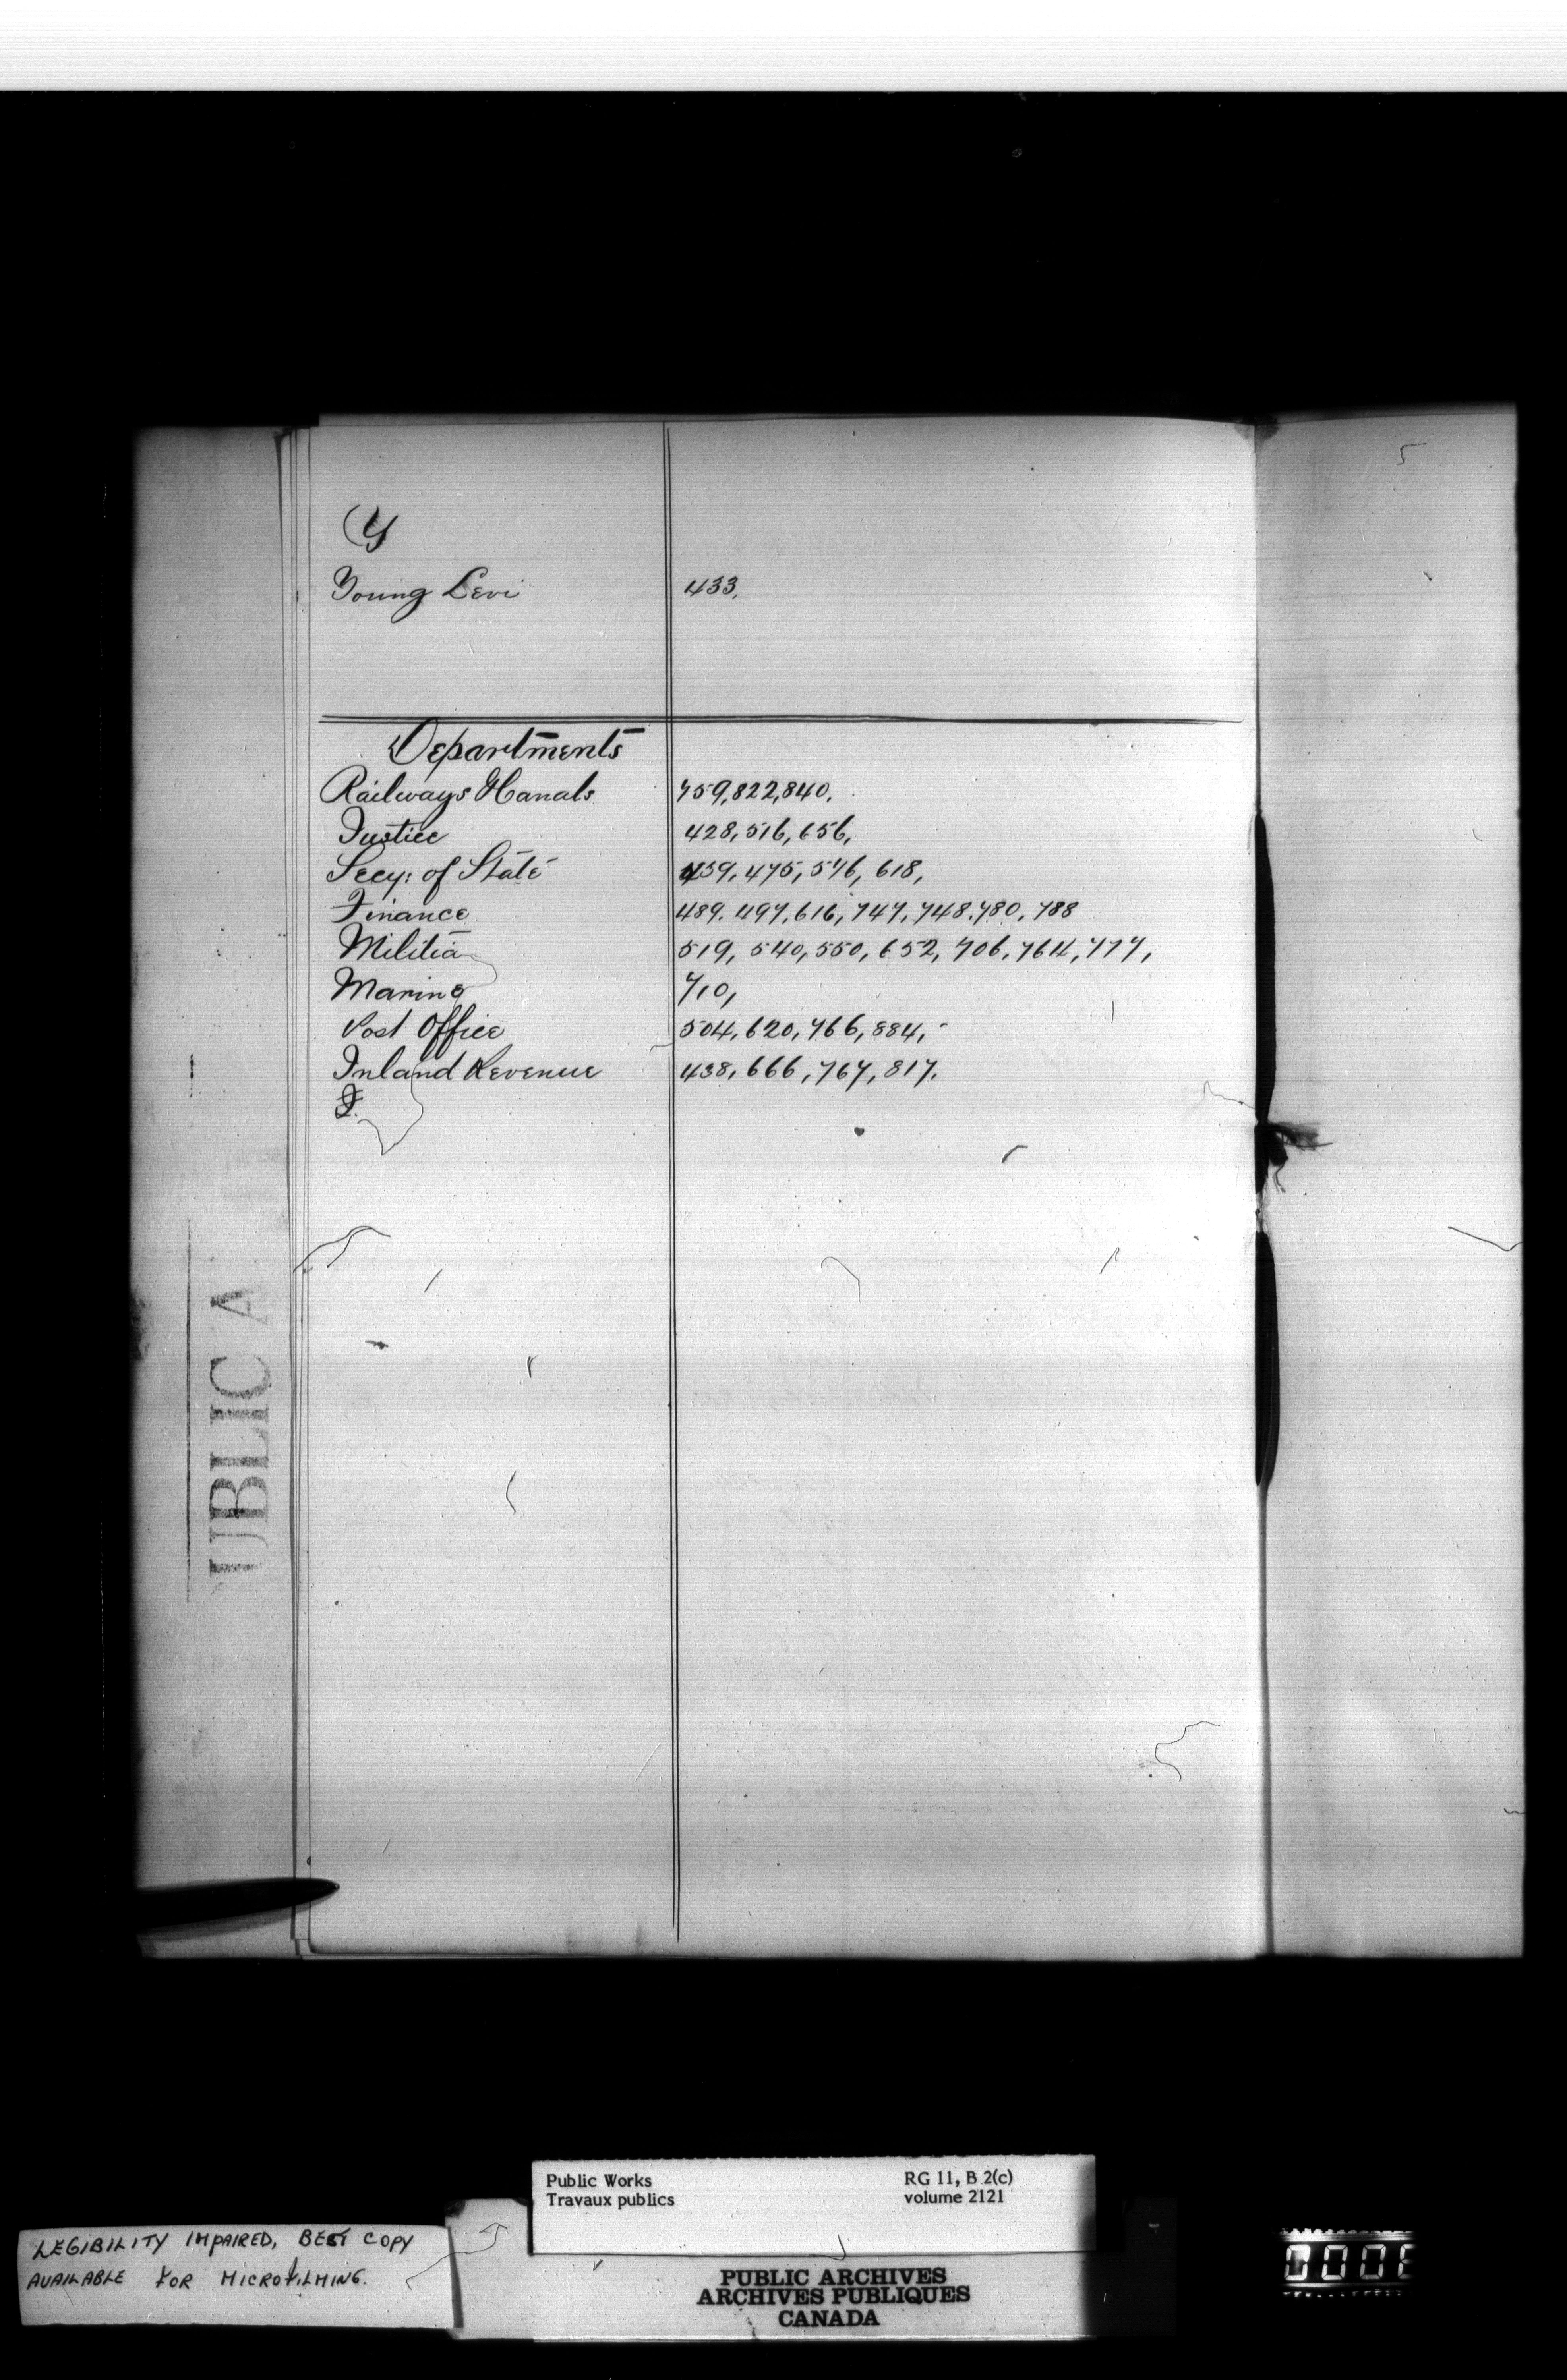 5
Y
Young Levi 433.
Departments
Railways & Canals 759,822,840.
Justice 428,516,656,
Secy: of State 439,475,576,618,
Finance 489.497,616,747,748,780,788
Militia 519,540,550,652,706,764,777,
Marine 710,
Post Office 504,620,766,884,-
Inland Revenue 438,666,767,817.
UBLIC A
Public Works RG 11, B 2(c)
Travaux publics volume 2121
LEGIBILITY IMPAIRED, BEST COPY
AVAILABLE FOR MICROFILMING.
PUBLIC ARCHIVES
ARCHIVES PUBLIQUES
CANADA